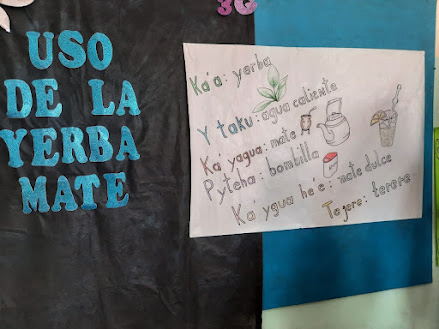 3G
USO
DE LA
YERBA
MATE
Ka'a: yerba
Y taku: agua caliente
Ka'yagua: mate
Pyteha: bombilla
Ka'ygua he'ẽ: mate dulce
Tejere: terere